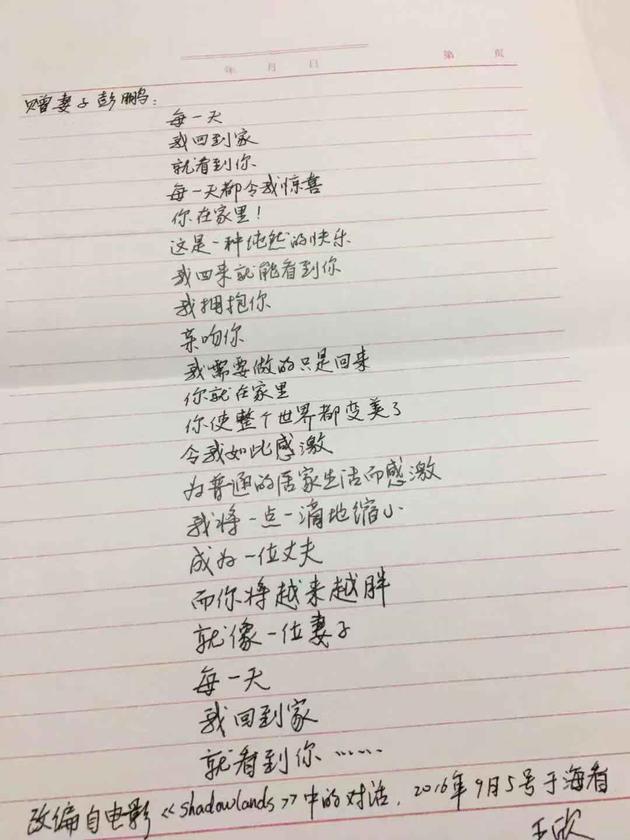 年 月 日 第 页
赠妻子彭鹏：
每一天
我回到家
就看到你
每一天都令我惊喜
你在家里！
这是一种纯然的快乐
我回来就能看到你
我拥抱你
亲吻你
我需要做的只是回来
你就在家里
你使整个世界都变美了
令我如此感激
为普通的居家生活而感激
我将一点一滴地缩小
成为一位丈夫
而你将越来越胖
就像一位妻子
每一天
我回到家
就看到你……
改编自电影《shadowlands》中的对话，2016年9月5号于海省